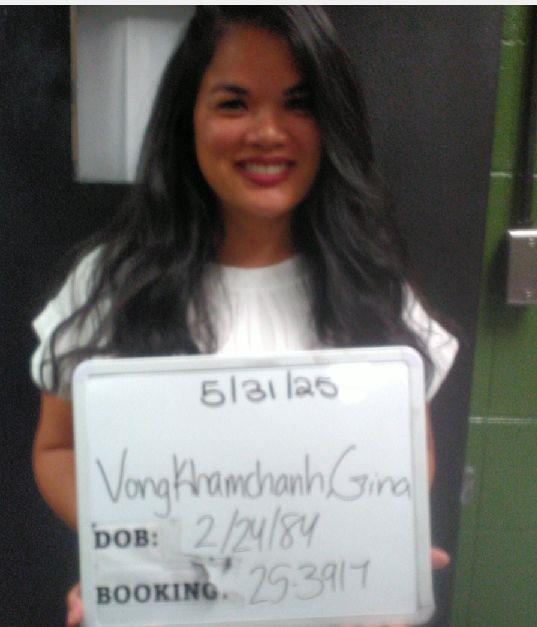 5/31/25
Vongkhamchanh, Gina
DOB: 2/24/84
BOOKING: 25-3917